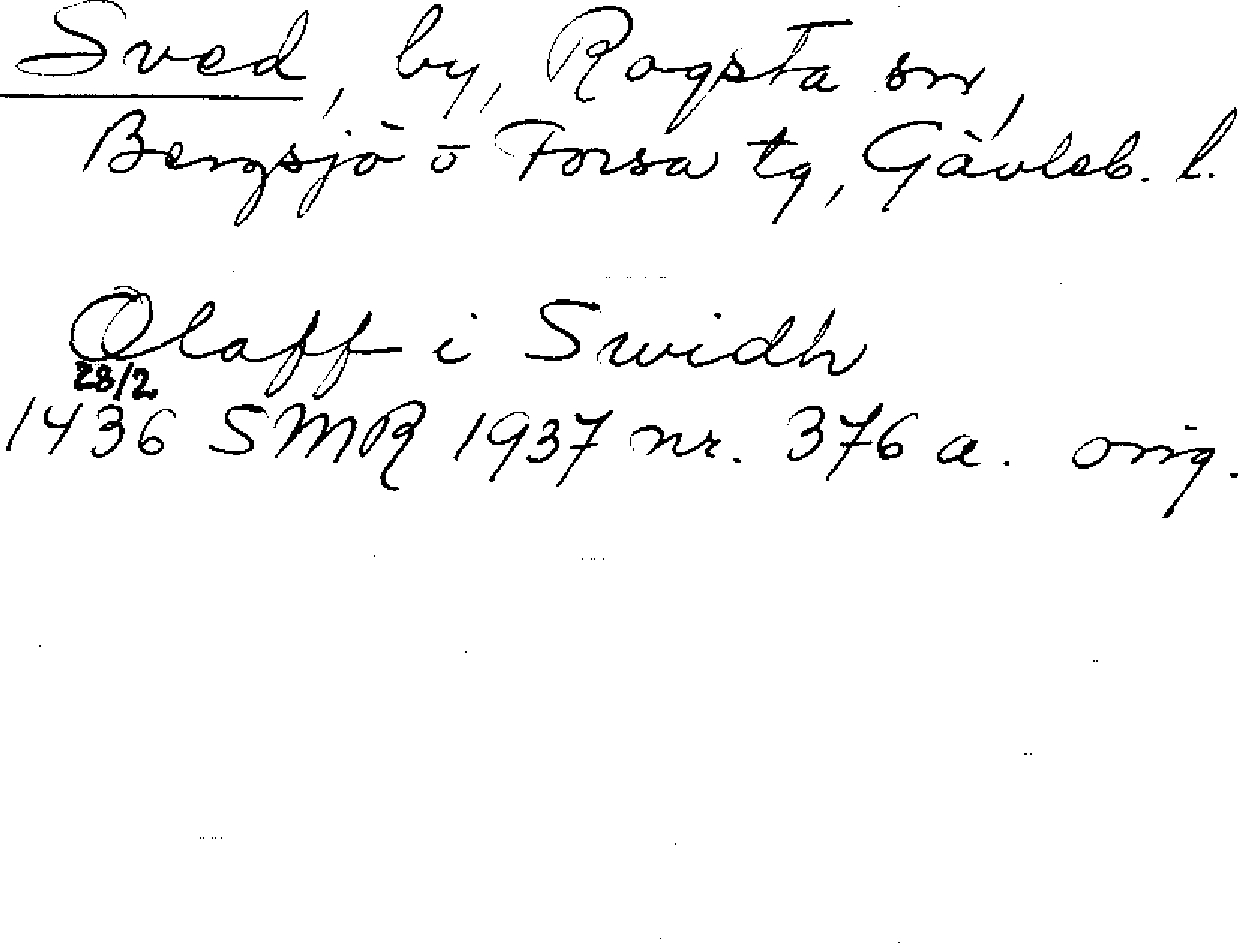 Sved, by, Rogsta sn,
Bergsjö o Forsa tg, Gävleb. l.
Olaff i Swidh
28/2
1436 SMR 1937 nr. 376 a. orig.